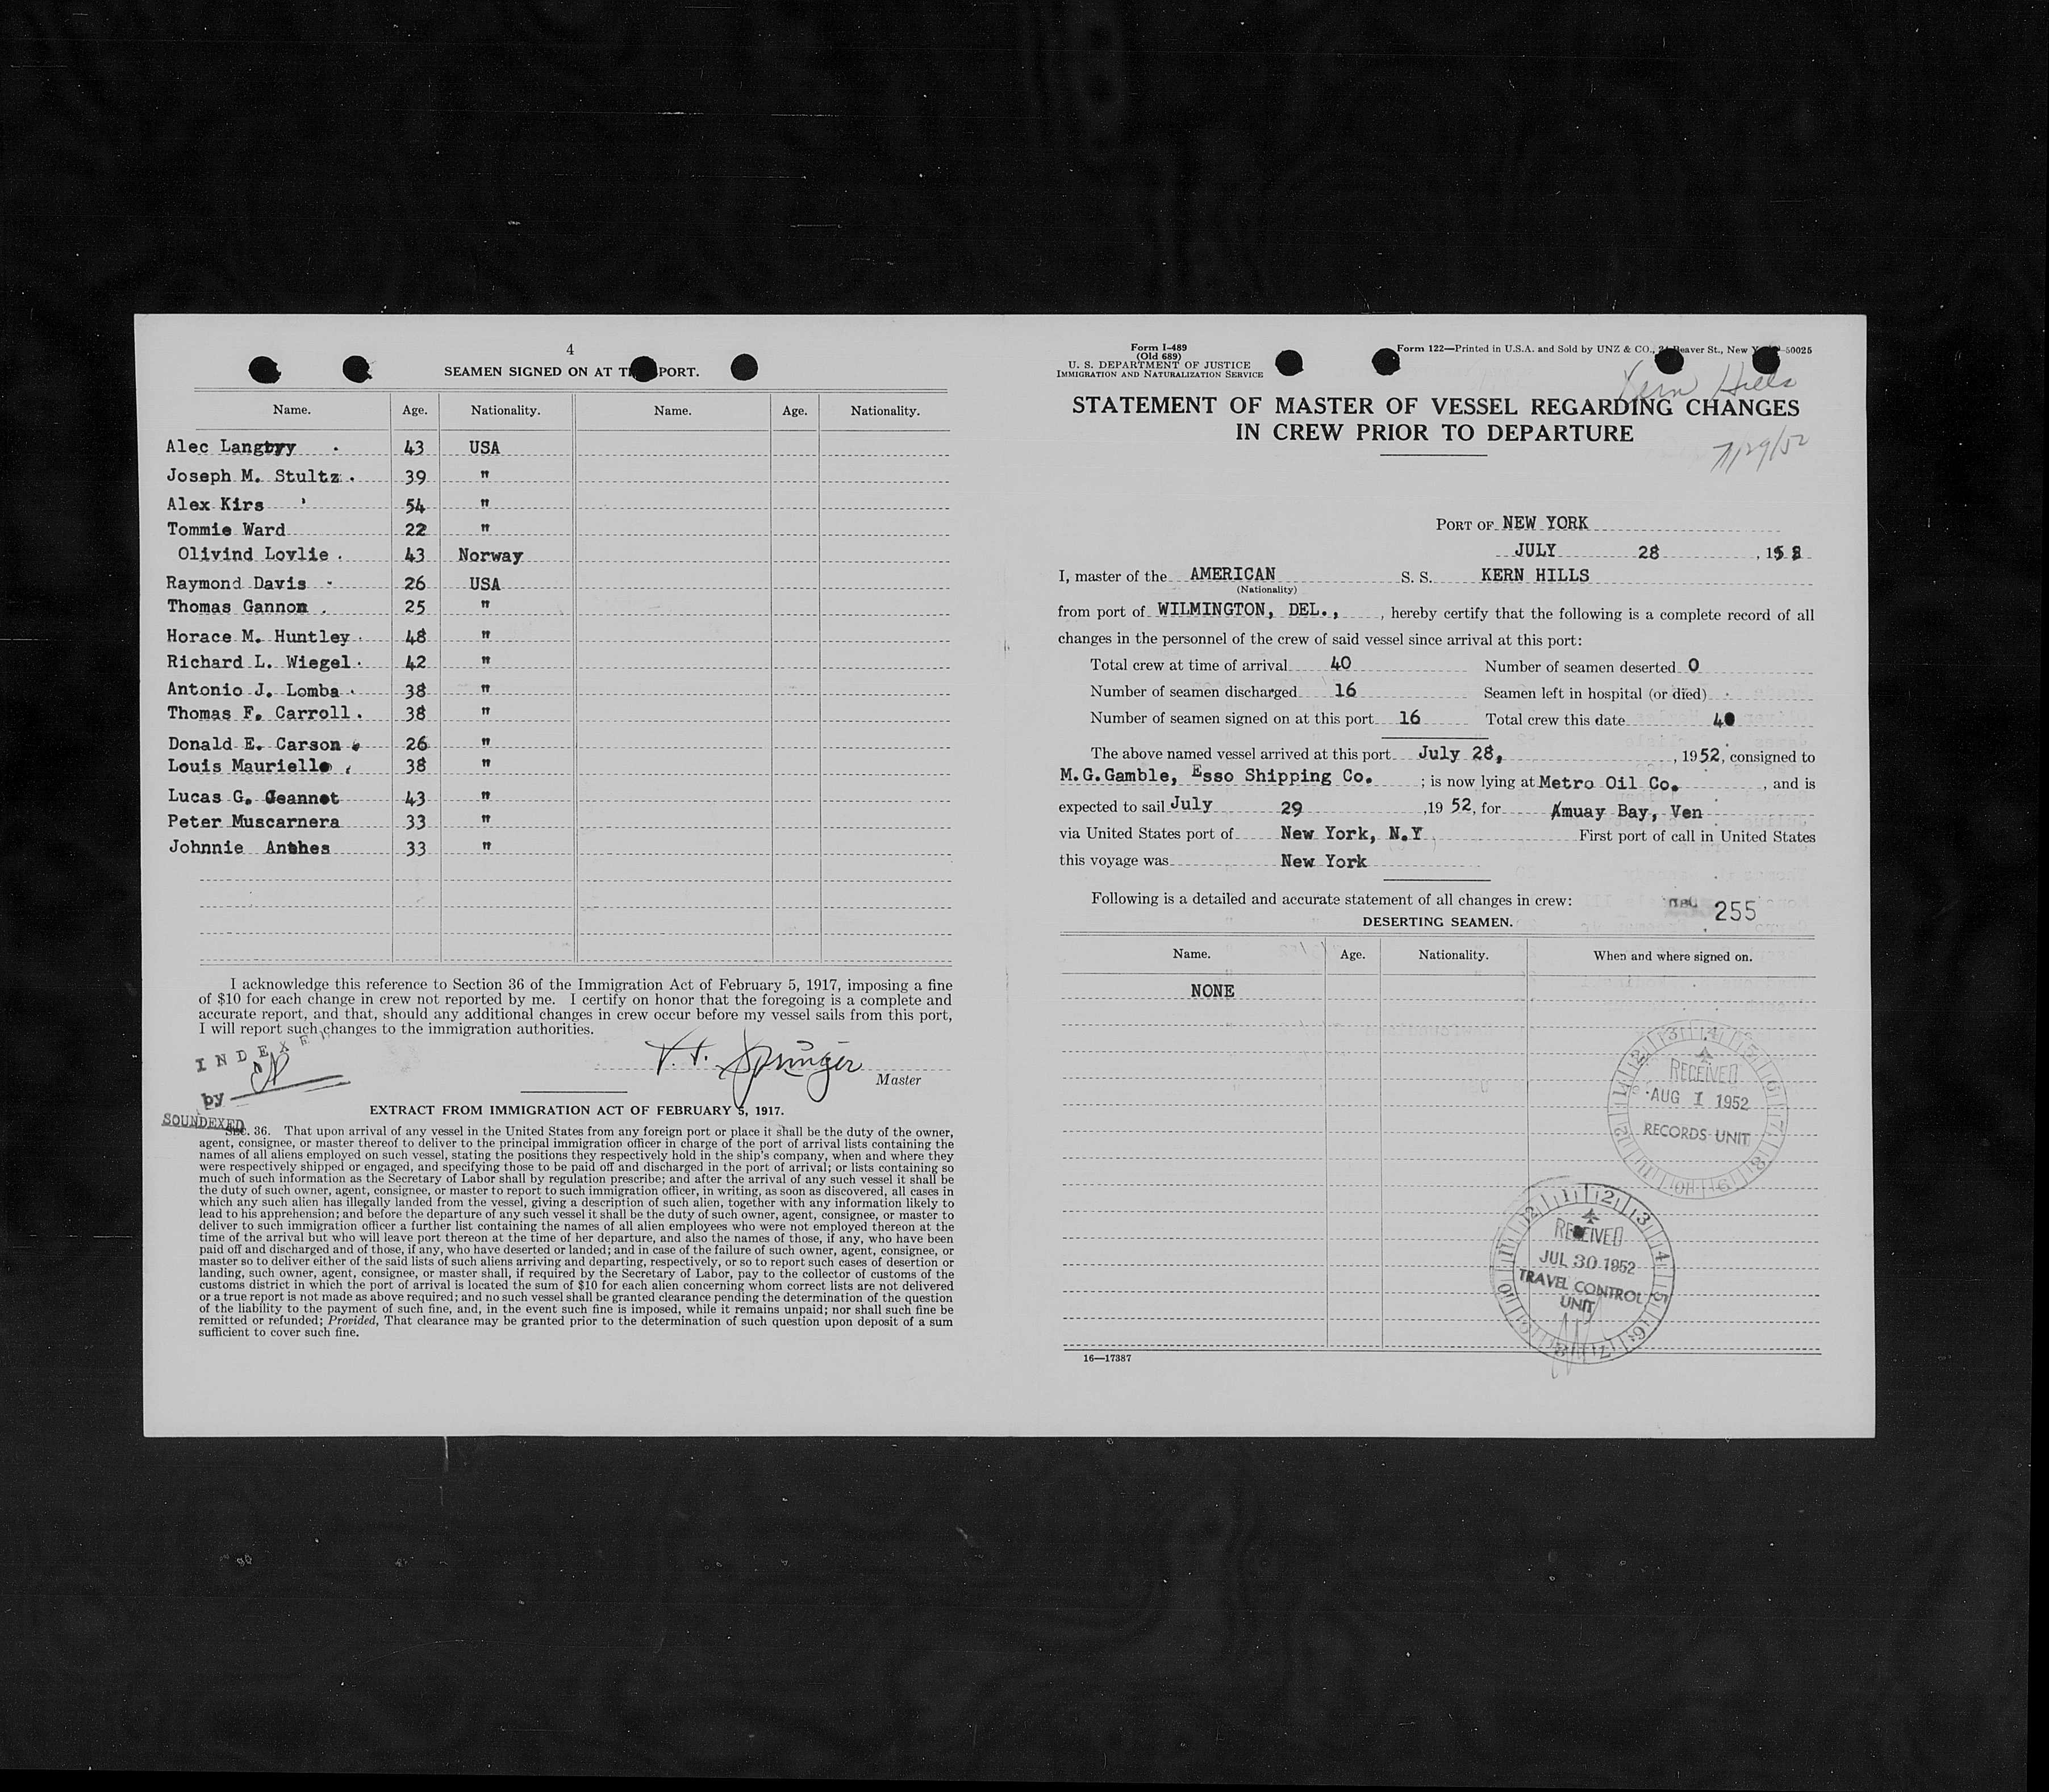 4
SEAMEN SIGNED ON AT TH PORT.
Name. Age. Nationality. Name. Age. Nationality.
Alec Langtry 43 USA
Joseph M. Stultz 39 "
Alex Kirs 54 "
Tommie Ward 22 "
Olivind Lovlie 43 Norway
Raymond Davis 26 USA
Thomas Gannon 25 "
Horace M. Huntley 48 "
Richard L. Wiegel 42 "
Antonio J. Lomba 38 "
Thomas F. Carroll 38 "
Donald E. Carson 26 "
Louis Mauriello 38 "
Lucas G. Jeannot 43 "
Peter Muscarnera 33 "
Johnnie Anthes 33 "
I acknowledge this reference to Section 36 of the Immigration Act of February 5, 1917, imposing a fine
of $10 for each change in crew not reported by me. I certify on honor that the foregoing is a complete and
accurate report, and that, should any additional changes in crew occur before my vessel sails from this port,
I will report such changes to the immigration authorities.
INDEXED
by
SOUNDEXED
Springer
Master
EXTRACT FROM IMMIGRATION ACT OF FEBRUARY 5, 1917.
SEC. 36. That upon arrival of any vessel in the United States from any foreign port or place it shall be the duty of the owner,
agent, consignee, or master thereof to deliver to the principal immigration officer in charge of the port of arrival lists containing the
names of all aliens employed on such vessel, stating the positions they respectively hold in the ship's company, when and where they
were respectively shipped or engaged, and specifying those to be paid off and discharged in the port of arrival; or lists containing so
much of such information as the Secretary of Labor shall by regulation prescribe; and after the arrival of any such vessel it shall be
the duty of such owner, agent, consignee, or master to report to such immigration officer, in writing, as soon as discovered, all cases in
which any such alien has illegally landed from the vessel, giving a description of such alien, together with any information likely to
lead to his apprehension; and before the departure of any such vessel it shall be the duty of such owner, agent, consignee, or master to
deliver to such immigration officer a further list containing the names of all alien employees who were not employed thereon at the
time of the arrival but who will leave port thereon at the time of her departure, and also the names of those, if any, who have been
paid off and discharged and of those, if any, who have deserted or landed; and in case of the failure of such owner, agent, consignee, or
master so to deliver either of the said lists of such aliens arriving and departing, respectively, or so to report such cases of desertion or
landing, such owner, agent, consignee, or master shall, if required by the Secretary of Labor, pay to the collector of customs of the
customs district in which the port of arrival is located the sum of $10 for each alien concerning whom correct lists are not delivered
or a true report is not made as above required; and no such vessel shall be granted clearance pending the determination of the question
of the liability to the payment of such fine, and, in the event such fine is imposed, while it remains unpaid; nor shall such fine be
remitted or refunded; Provided, That clearance may be granted prior to the determination of such question upon deposit of a sum
sufficient to cover such fine.
Form I-489
(Old 689)
U. S. DEPARTMENT OF JUSTICE
IMMIGRATION AND NATURALIZATION SERVICE
Form 122—Printed in U.S.A. and Sold by UNZ & CO., Beaver St., New 50025
Kern Hills
STATEMENT OF MASTER OF VESSEL REGARDING CHANGES
IN CREW PRIOR TO DEPARTURE
7/29/52
PORT OF NEW YORK
JULY 28, 1952
I, master of the AMERICAN S. S. KERN HILLS
(Nationality)
from port of WILMINGTON, DEL., , hereby certify that the following is a complete record of all
changes in the personnel of the crew of said vessel since arrival at this port:
Total crew at time of arrival 40 Number of seamen deserted 0
Number of seamen discharged 16 Seamen left in hospital (or died) -
Number of seamen signed on at this port 16 Total crew this date 40
The above named vessel arrived at this port July 28, , 1952, consigned to
M.G.Gamble, Esso Shipping Co. ; is now lying at Metro Oil Co. , and is
expected to sail July 29 ,19 52, for Amuay Bay, Ven
via United States port of New York, N.Y First port of call in United States
this voyage was New York
Following is a detailed and accurate statement of all changes in crew:
255
DESERTING SEAMEN.
Name. Age. Nationality. When and where signed on.
NONE
RECEIVED
AUG 1 1952
RECORDS UNIT
RECEIVED
JUL 30 1952
TRAVEL CONTROL
UNIT
16—17387